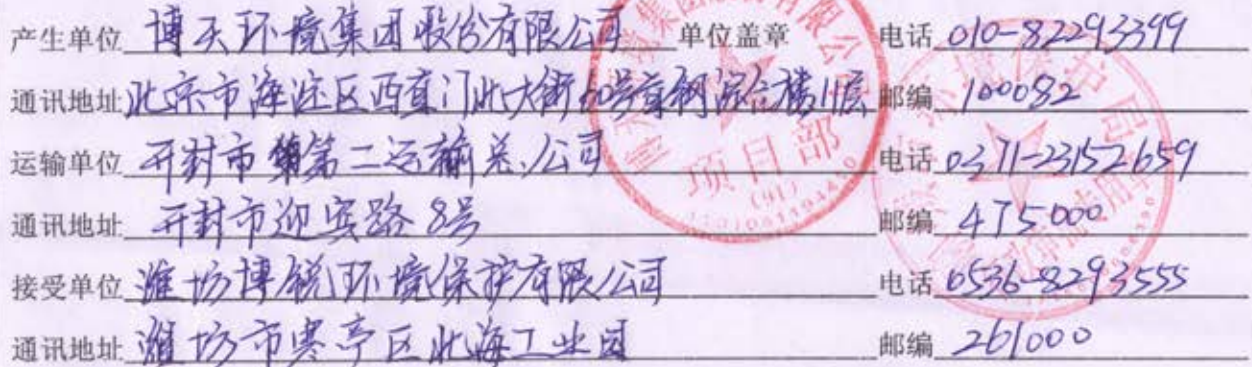 产生单位 博天环境集团股份有限公司 单位盖章 电话 010-82293399
通讯地址 北京市海淀区西直门北大街60号首钢综合楼11层 邮编 100082
运输单位 开封市第二运输总公司 电话 0371-23152659
通讯地址 开封市迎宾路8号 邮编 475000
接受单位 潍坊博锐环境保护有限公司 电话 0536-8293555
通讯地址 潍坊市寒亭区北海工业园 邮编 261000
项目部
(91)